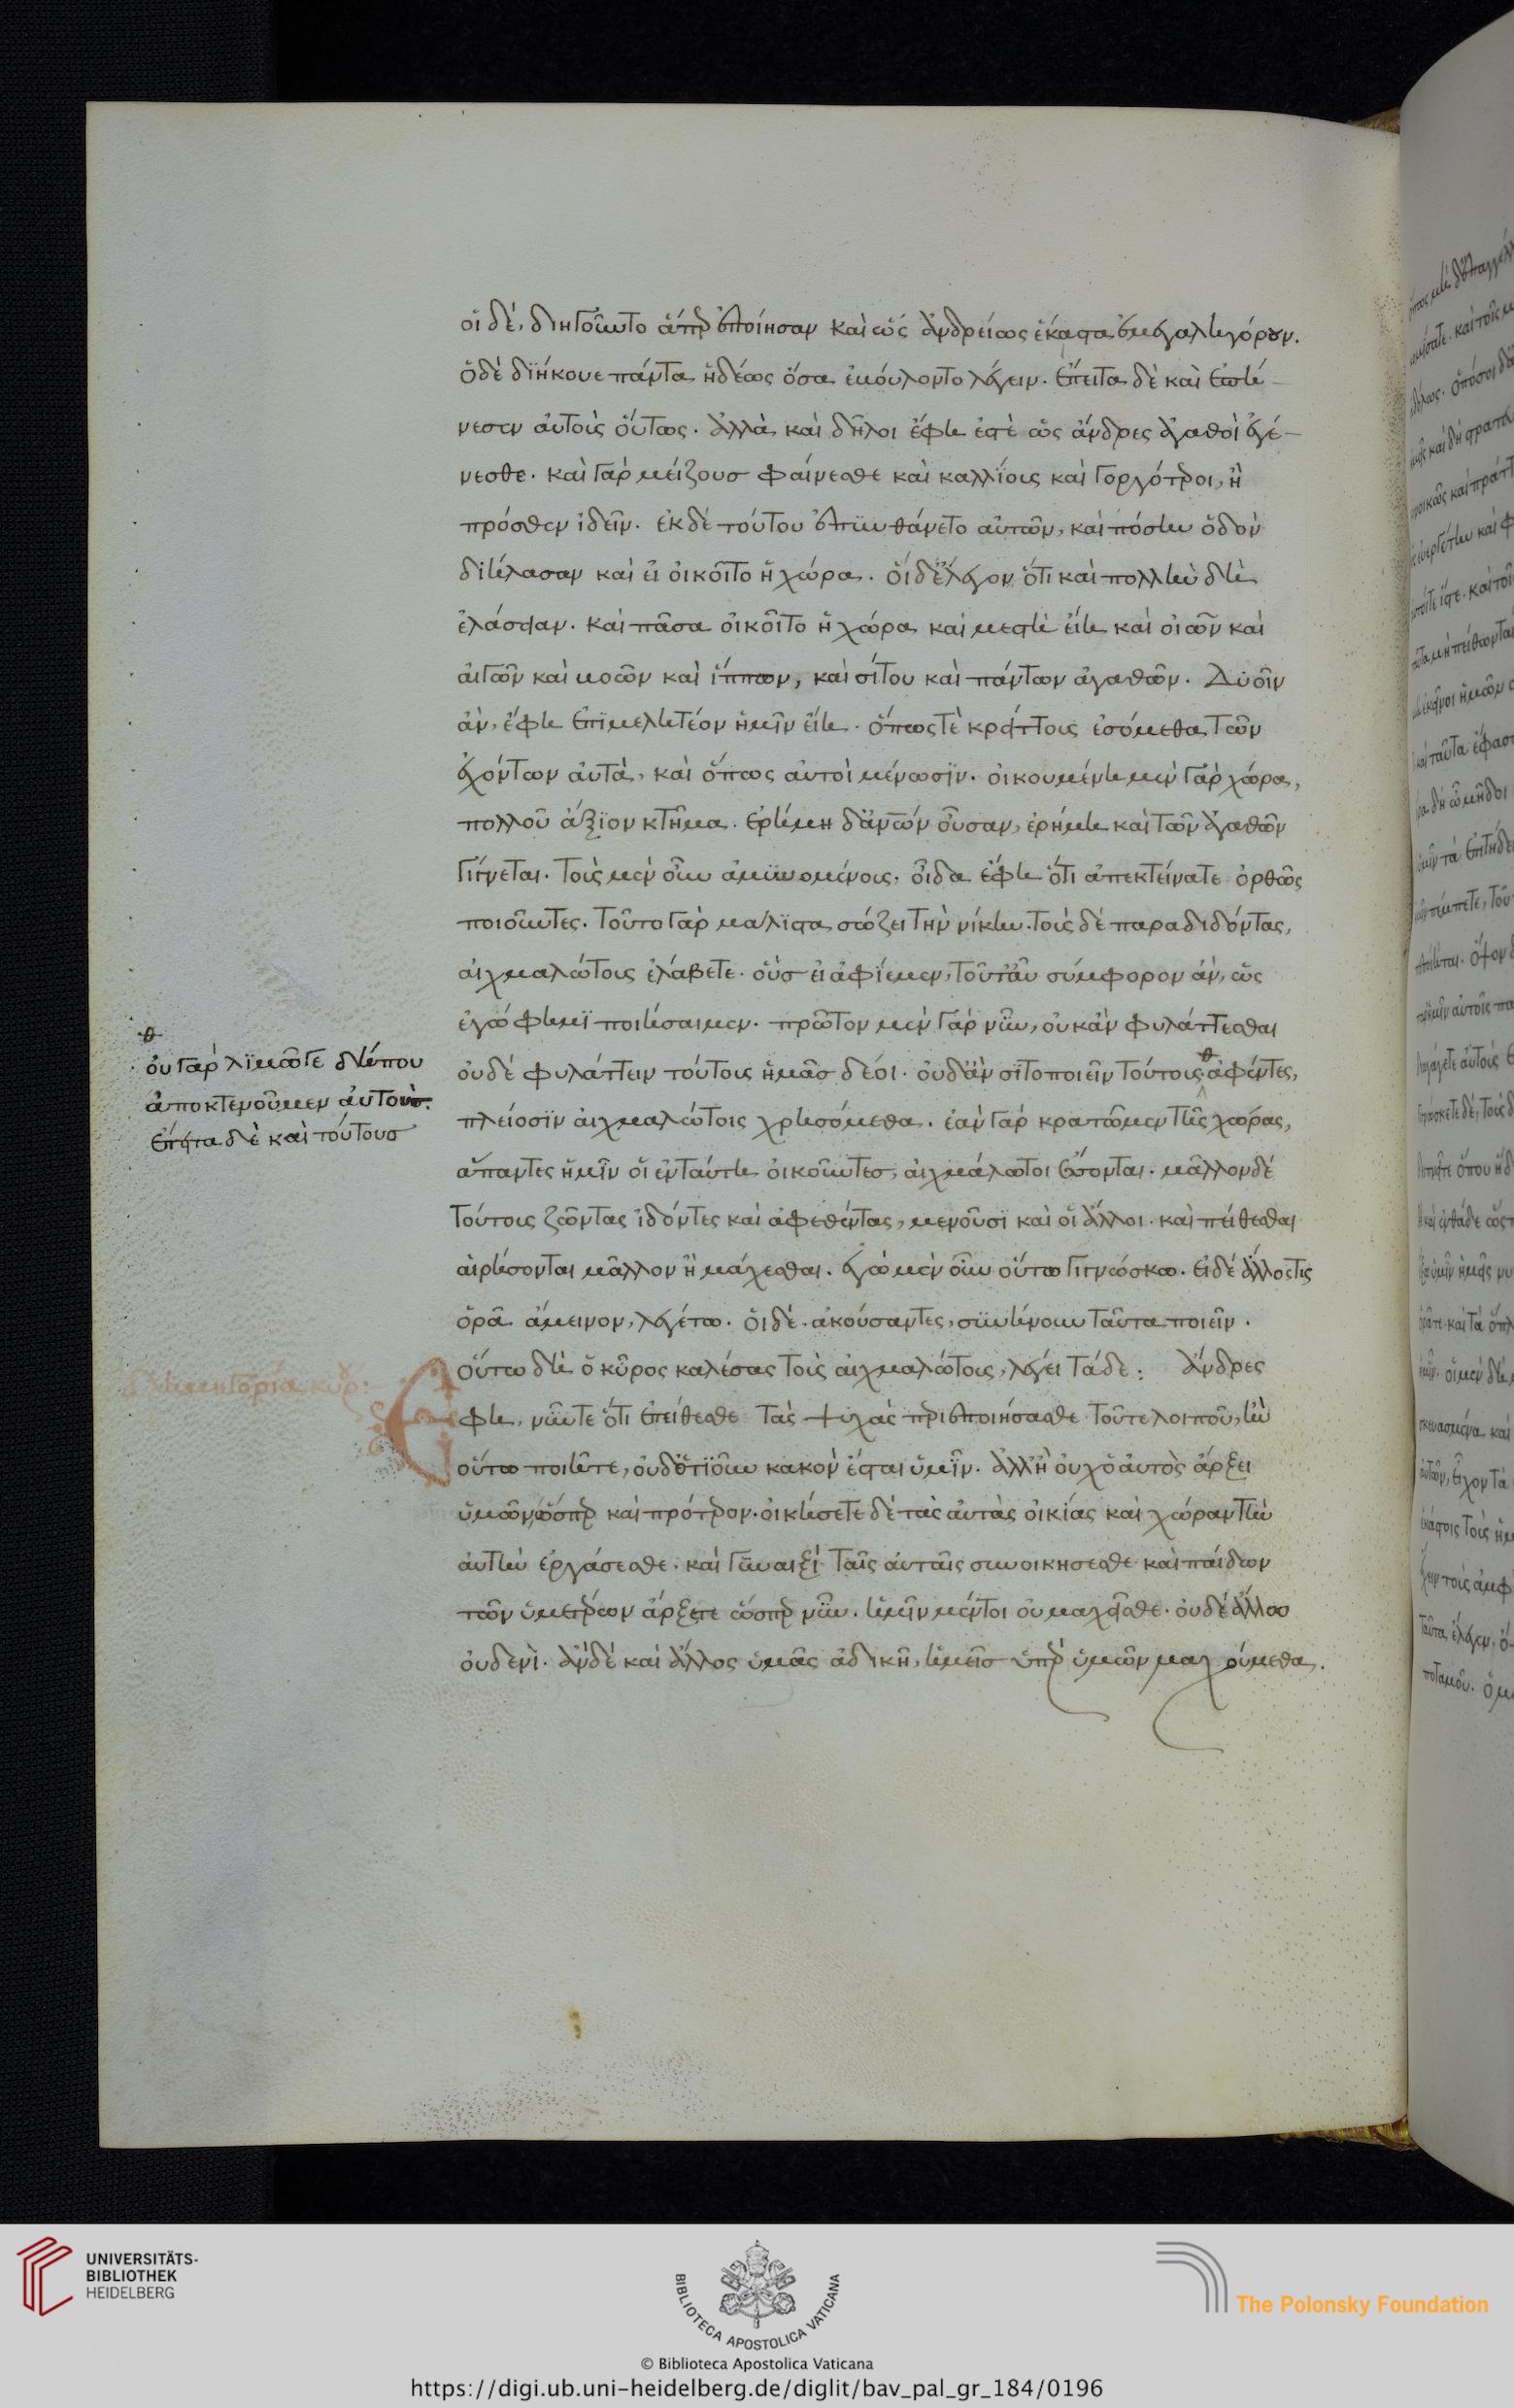 οἵ δὲ, διηγοῦντο ἅπερ ἐποίησαν καὶ ὡς ἀνδρείως ἕκαστα ἐμεγαληγόρουν.
ὁ δὲ διήκουε πάντα ἡδέως ὅσα ἐβούλοντο λέγειν. ἔπειτα δὲ καὶ ἐπή-
νεσεν αὐτοὺς οὕτως. ἀλλὰ καὶ δῆλοι ἔφη ἐστὲ ὡς ἄνδρες ἀγαθοὶ ἐγέ-
νεσθε. καὶ γὰρ μείζους φαίνεσθε καὶ καλλίους καὶ γοργότεροι, ἢ
πρόσθεν ἰδεῖν. ἐκ δὲ τούτου ἐπυνθάνετο αὐτῶν, καὶ πόσην ὁδὸν
διήλασαν καὶ εἰ οἰκοῖτο ἡ χώρα. οἱ δ' ἔλεγον ὅτι καὶ πολλὴν διὴ
ἐλάσειαν. καὶ πᾶσα οἰκοῖτο ἡ χώρα καὶ μεστὴ εἴη καὶ οἰῶν καὶ
αἰγῶν καὶ βοῶν καὶ ἵππων, καὶ σίτου καὶ πάντων ἀγαθῶν. Δυοῖν
ἂν, ἔφη ἐπιμελητέον ἡμῖν εἴη. ὅπως τὲ κρείττους ἐσόμεθα τῶν
ἐχόντων αὐτὰ, καὶ ὅπως αὐτοὶ μένωσιν. οἰκουμένη μὲν γὰρ χώρα,
πολλοῦ ἄξιον κτῆμα. ἐρήμη δ' ἀν̅ων οὖσαν, ἐρήμη καὶ τῶν ἀγαθῶν
γίγνεται. τοὺς μὲν οὖν ἀμυνομένους, οἶδα ἔφη ὅτι ἀπεκτείνατε ὀρθῶς
ποιοῦντες. τοῦτο γὰρ μάλιστα σώζει τὴν νίκην. τοὺς δὲ παραδιδόντας,
αἰχμαλώτους ἐλάβετε. οὓς εἰ ἀφίεμεν, τοῦτ' ἂν σύμφορον ἂν, ὡς
ἐγώ φημι ποιήσαιμεν. πρῶτον μὲν γὰρ νῦν, οὐκ ἂν φυλάττεσθαι
οὐδὲ φυλάττειν τούτους ἡμᾶς δέοι. οὐδ' ἂν σιτοποιεῖν τούτοις ἀφέντες,
πλείοσιν αἰχμαλώτοις χρησόμεθα. ἐὰν γὰρ κρατῶμεν τῆς χώρας,
ἅπαντες ἡμῖν οἱ ἐνταύτη οἰκοῦντες, αἰχμάλωτοι ἔσονται. μᾶλλον δὲ
τούτους ζῶντας ἰδόντες καὶ ἀφεθέντας, μενοῦσι καὶ οἱ ἄλλοι. καὶ πείθεσθαι
αἱρήσονται μᾶλλον ἢ μάχεσθαι. ἐγὼ μὲν οὖν οὕτω γιγνώσκω. εἰ δὲ ἄλλός τις
ὁρᾷ ἄμεινον, λεγέτω. οἱ δὲ ἀκούσαντες, συνήνουν ταῦτα ποιεῖν.
οὕτω δὴ ὁ κῦρος καλέσας τοὺς αἰχμαλώτους, λέγει τάδε: Ἄνδρες
ἔφη, νῦν τε ὅτι ἐπείθεσθε τὰς ψυχὰς περιεποιήσασθε τοῦτε λοιποῦ, ἢν
οὕτω ποιῆτε, οὐδ' ὅτι οὖν κακὸν ἔσται ὑμῖν. ἀλλ' ἢ οὐχ ὁ αὐτὸς ἄρξει
ὑμῶν, ὥσπερ καὶ πρότερον. οἰκήσετε δὲ τὰς αὐτὰς οἰκίας καὶ χώραν τὴν
αὐτὴν ἐργάσεσθε. καὶ γυναιξὶ ταῖς αὐταῖς συνοικήσεσθε καὶ παίδων
τῶν ὑμετέρων ἄρξετε ὥσπερ νῦν. ἡμῖν μέντοι οὐ μαχεῖσθε. οὐδὲ ἄλλω
οὐδενὶ. ἂν δὲ καὶ ἄλλος ὑμᾶς ἀδικῇ, ἡμεῖς ὑπὲρ ὑμῶν μαχούμεθα.
οὐ γὰρ λιμῶ γε δήπου
ἀποκτενοῦμεν αὐτούς.
ἔπειτα δὲ καὶ τούτους
δημηγορία κύρ:
UNIVERSITÄTS-
BIBLIOTHEK
HEIDELBERG
BIBLIOTECA APOSTOLICA VATICANA
The Polonsky Foundation
© Biblioteca Apostolica Vaticana
https://digi.ub.uni-heidelberg.de/diglit/bav_pal_gr_184/0196